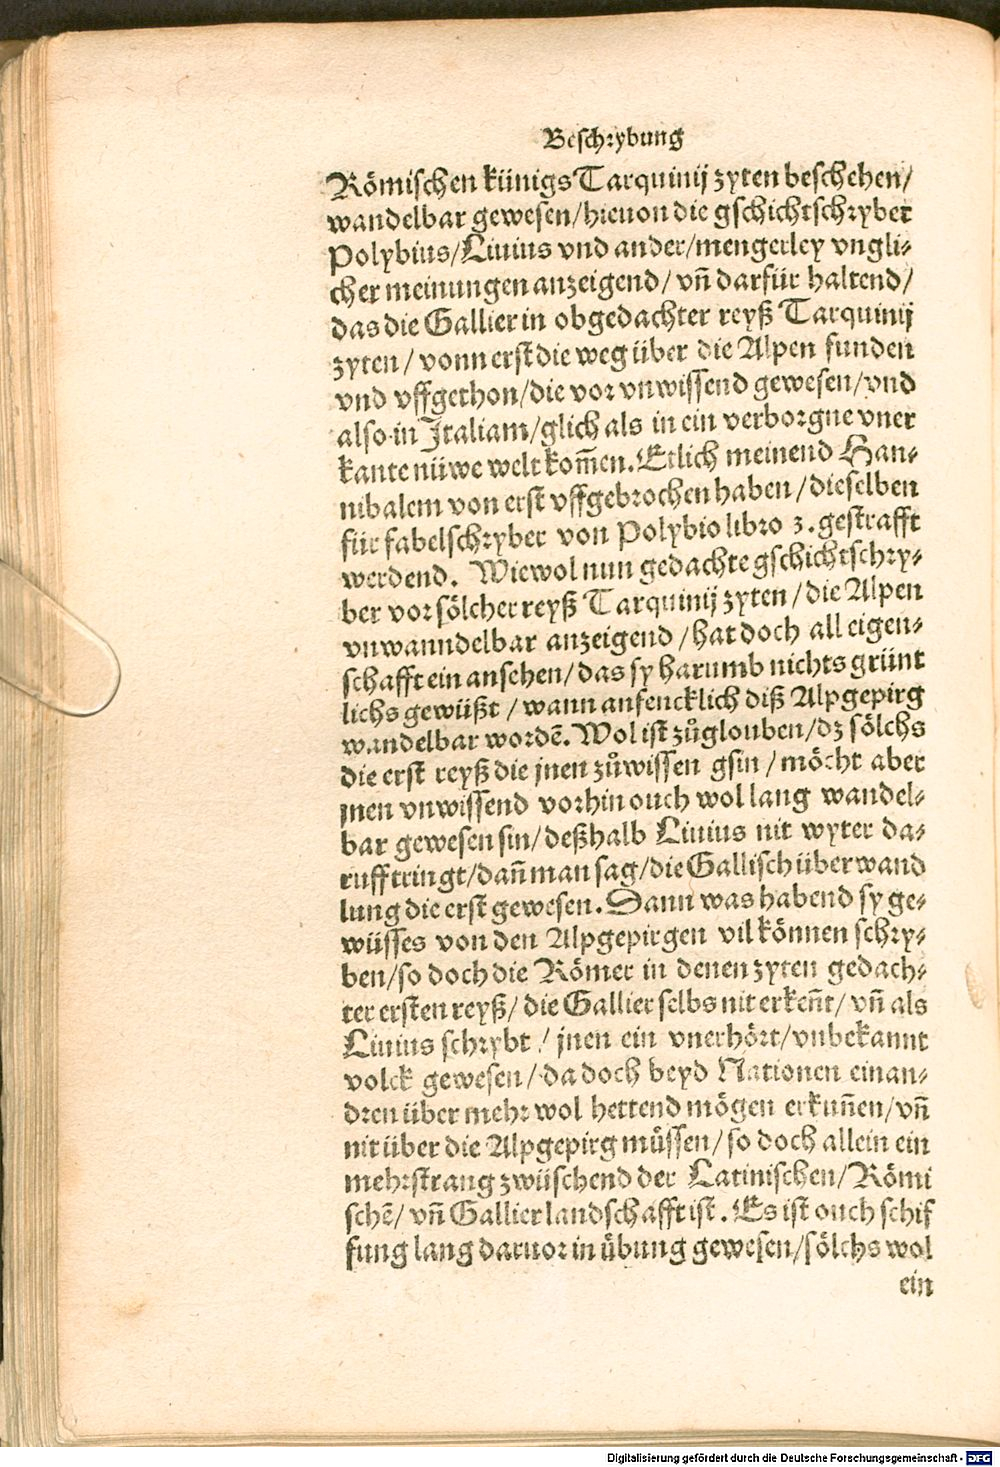 Beschrybung
Römischen künigs Tarquinij zyten beschehen/
wandelbar gewesen/hieuon die gschichtschryber
Polybius/Liuius vnd ander/mengerley vngli-
cher meinungen anzeigend/ vñ darfür haltend/
das die Gallier in obgedachter reyß Tarquinij
zyten/ vonn erst die weg über die Alpen funden
vnd vffgethon/die vor vnwissend gewesen/vnd
also in Italiam/glich als in ein verborgne vner
kante nüwe welt kom̃en. Etlich meinend Han-
nibalem von erst vffgebrochen haben/dieselben
für fabelschryber von Polybio libro 3. gestrafft
werdend. Wiewol nun gedachte gschichtschry-
ber vor sölcher reyß Tarquinij zyten/die Alpen
vnwanndelbar anzeigend/hat doch all eigen-
schafft ein ansehen/das sy harumb nichts grünt
lichs gewüßt/wann anfencklich diß Alpgepirg
wandelbar wordẽ. Wol ist zů glouben/dz sölchs
die erst reyß die jnen zů wissen gsin/möcht aber
jnen vnwissend vorhin ouch wol lang wandel-
bar gewesen sin/deßhalb Liuius nit wyter da-
ruff tringt/dañ man sag/die Gallisch überwand
lung die erst gewesen. Dann was habend sy ge-
wüsses von den Alpgepirgen vil können schry-
ben/so doch die Römer in denen zyten gedach-
ter ersten reyß/die Gallier selbs nit erkeñt/vñ als
Liuius schrybt/jnen ein vnerhört/vnbekannt
volck gewesen/da doch beyd Nationen einan-
dren über mehr wol hettend mögen erkuñen/vñ
nit über die Alpgepirg müssen/so doch allein ein
mehrstrang zwüschend der Latinischen/Römi
schẽ/vñ Gallier landschafft ist. Es ist ouch schif
fung lang daruor in übung gewesen/sölchs wol
ein
Digitalisierung gefördert durch die Deutsche Forschungsgemeinschaft - DFG